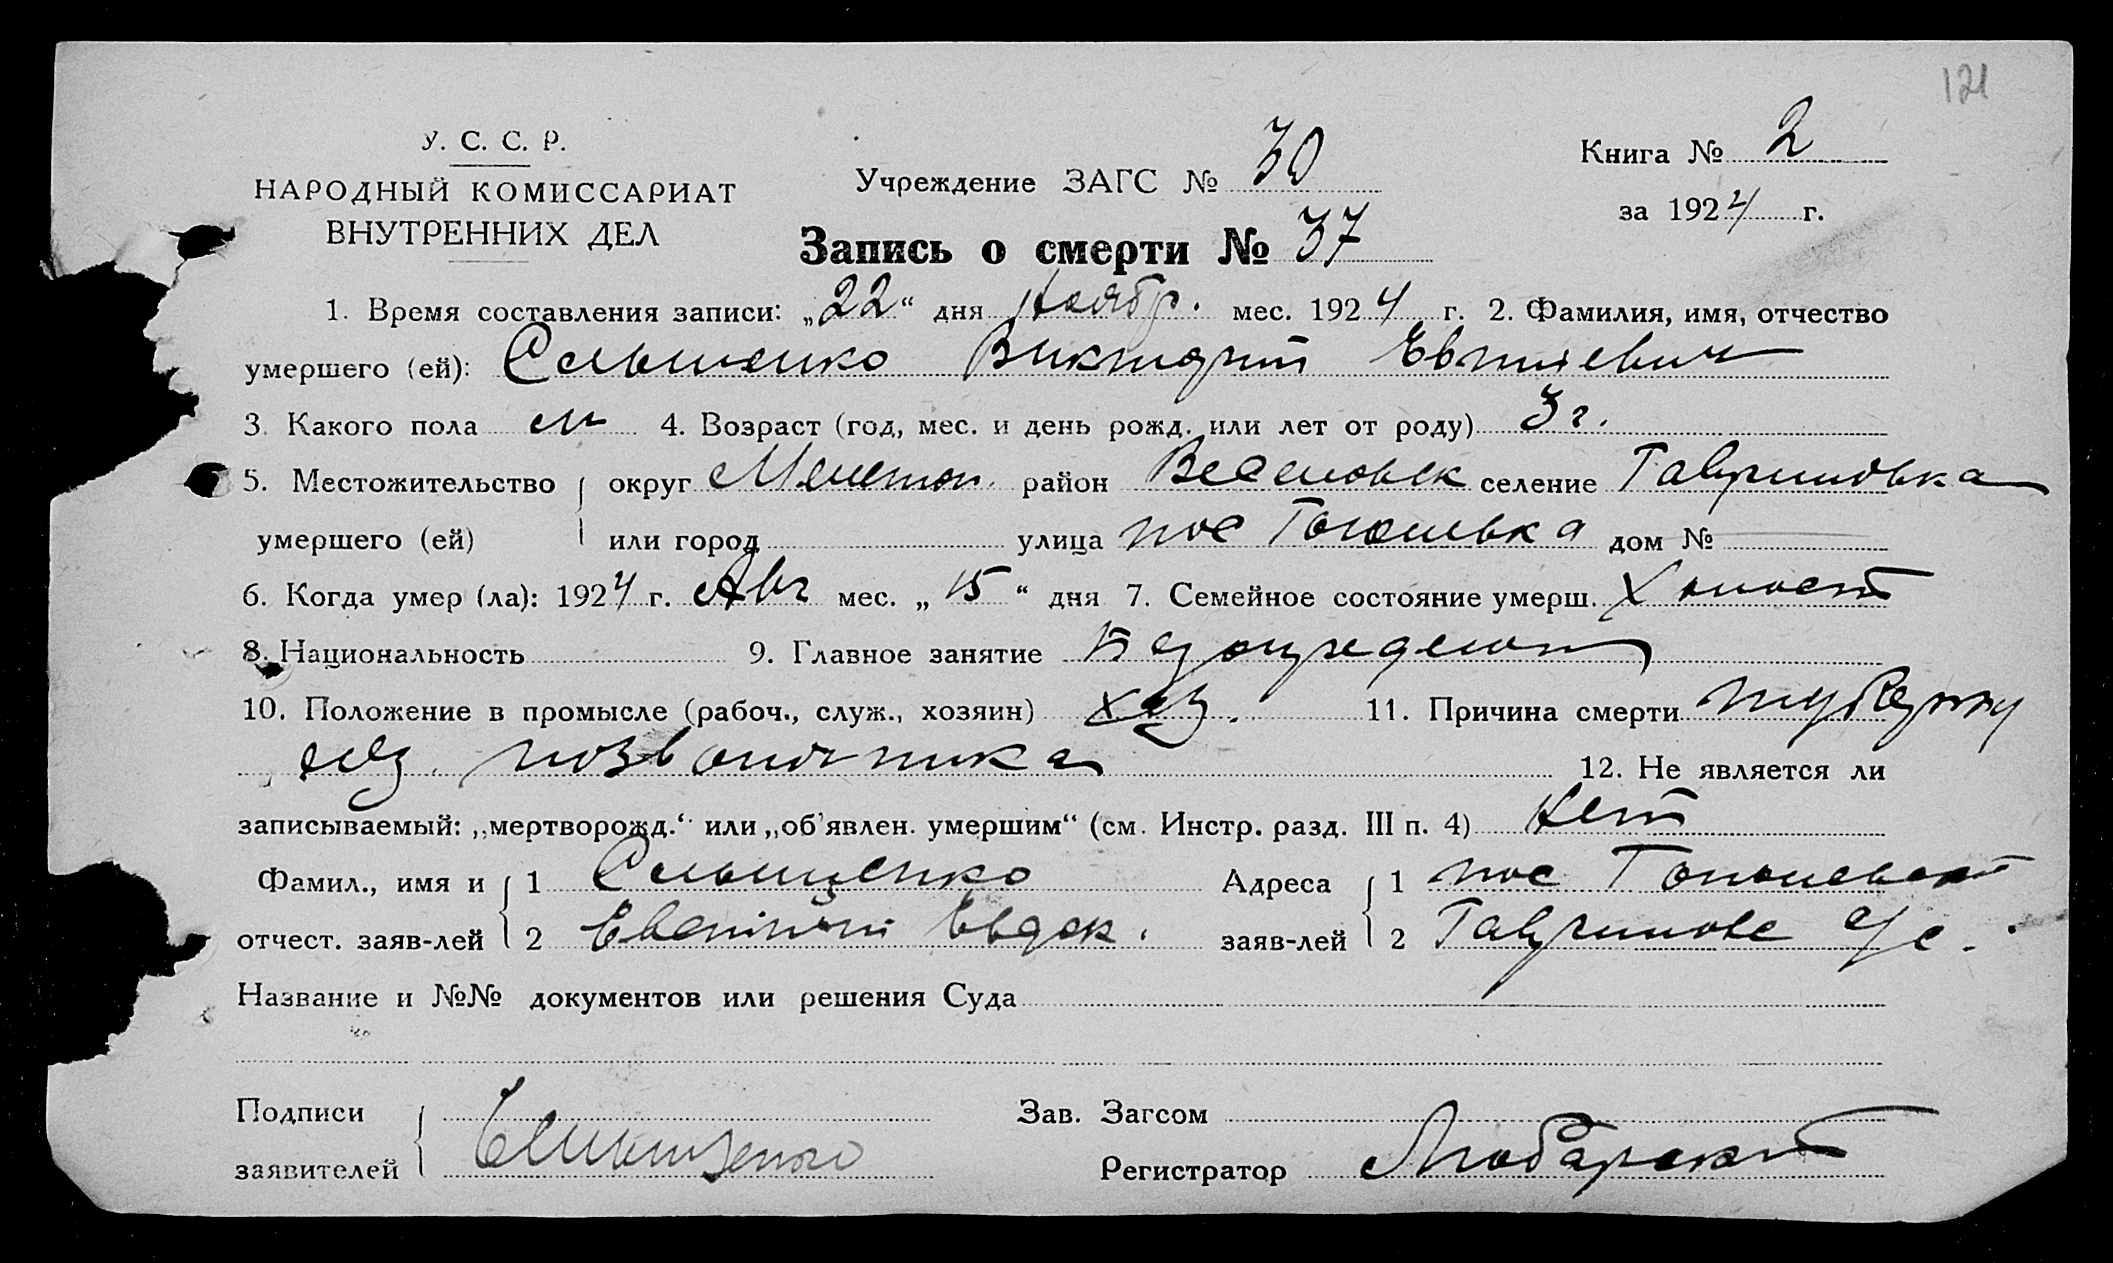 121
У. С. С. Р.
НАРОДНЫЙ КОМИССАРИАТ
ВНУТРЕННИХ ДЕЛ
Учреждение ЗАГС № 30
Книга № 2
за 1924 г.
Запись о смерти № 37
1. Время составления записи: „22“ дня Ноябр. мес. 1924 г. 2. Фамилия, имя, отчество
умершего (ей):
3. Какого пола м 4. Возраст (год, мес. и день рожд. или лет от роду) 3 г.
5. Местожительство округ Мелитоп. район Веселовск селение Гавриловка
умершего (ей) или город улица пос дом №
6. Когда умер (ла): 1924 г. Авг мес. „15“ дня 7. Семейное состояние умерш. Холост
8. Национальность 9. Главное занятие
10. Положение в промысле (рабоч., служ., хозяин) 11. Причина смерти туберку
лез. позвоночника 12. Не является ли
записываемый: „мертворожд.“ или „об'явлен. умершим“ (см. Инстр. разд. III п. 4) Нет
Фамил., имя и 1 Адреса 1 пос
отчест. заяв-лей 2 заяв-лей 2 с/с.
Название и №№ документов или решения Суда
Подписи Зав. Загсом
заявителей Регистратор Любарский